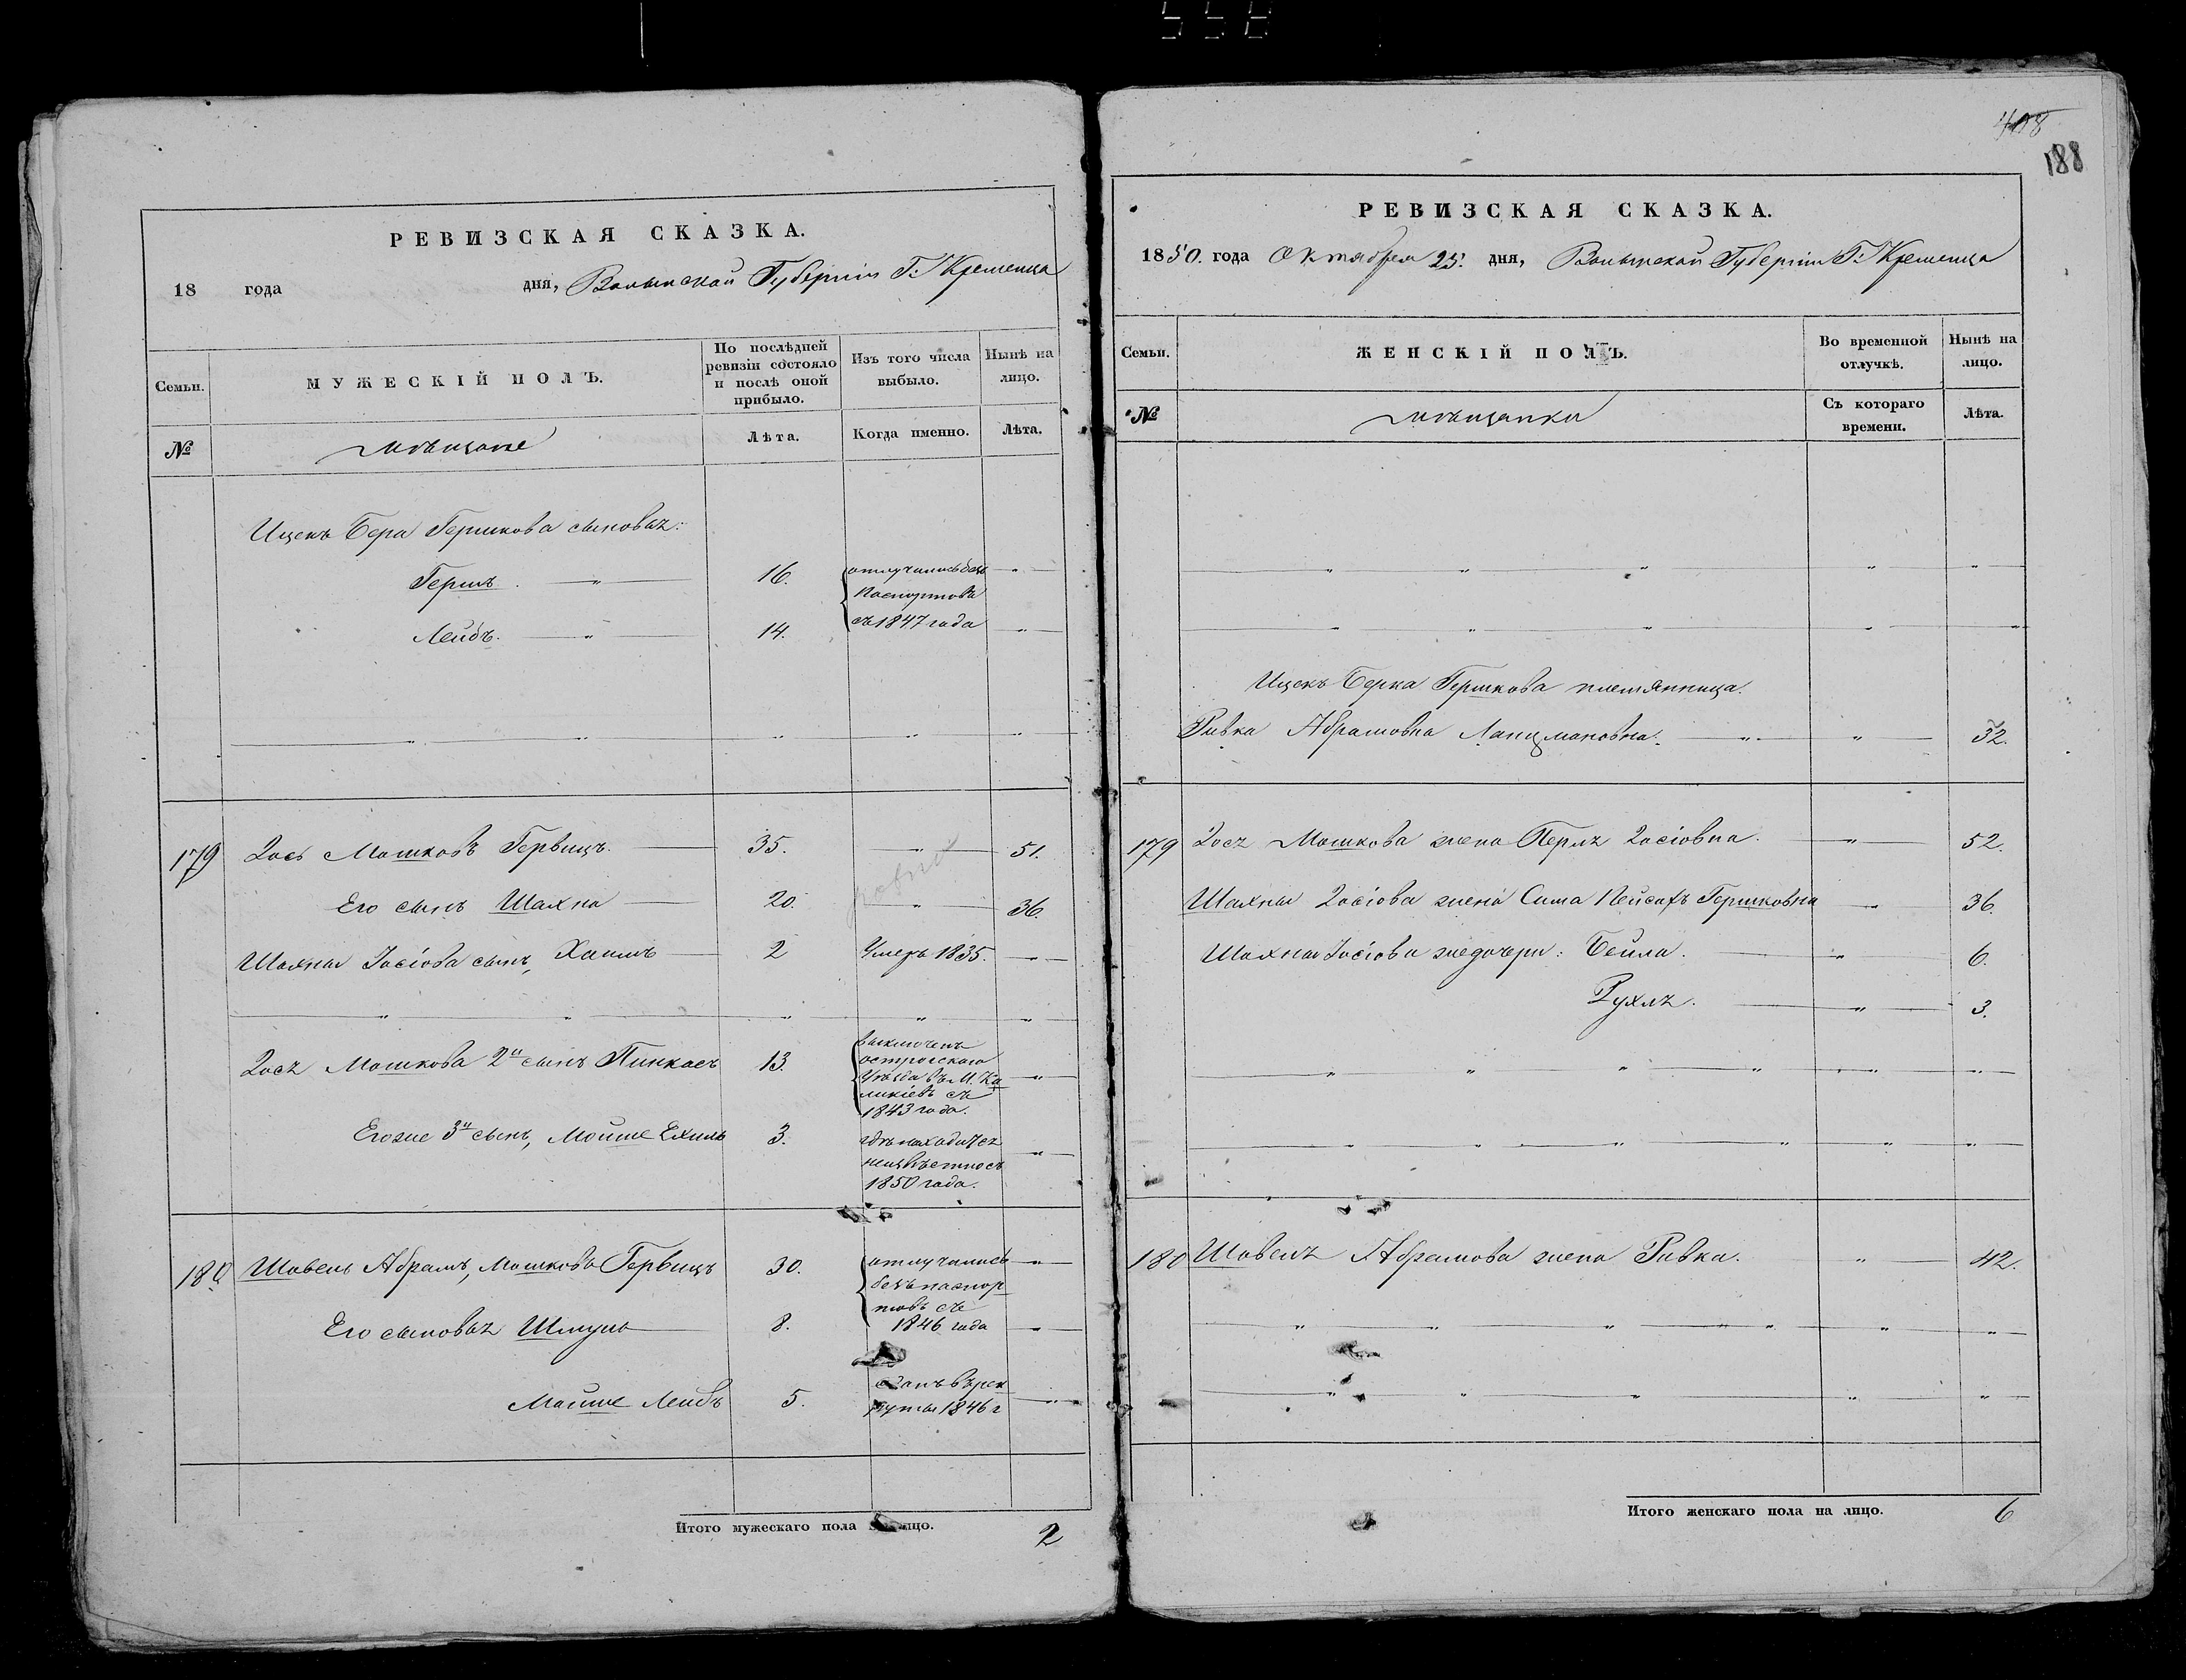 558
РЕВИЗСКАЯ СКАЗКА.
18 года дня, Волынской Губернiи Г: Кременца
Семьи.
МУЖЕСКІЙ ПОЛЪ.
По послѣдней ревизіи состояло и послѣ оной прибыло.
Изъ того числа выбыло.
Нынѣ на лицо.
№
мѣщане
Лѣта.
Когда именно.
Лѣта.
Ицекъ Бера Гершкова сыновья:
Гершъ 16. отлучились безъ
паспортовъ
Лейбъ. 14. съ 1847 года
179 Іось Мошковъ Гервицъ. 35. 51.
Его сынъ Шахна 20. 36.
Шахны Іосіова сынъ, Хаимъ 2 Умеръ 1835.
Іося Мошкова 2й сынъ Пинкасъ 13. выключенъ
острогскаго
Уѣзда въ М.
съ
1843 года.
Его же 3й сынъ, Мойше Ехиль 3. гдѣ находится
неизвѣстно съ
1850 года.
180 Шовель Абрамъ, Мошковъ Гервицъ 30. отлучились
безъ паспор
товъ съ
Его сыновья Шмуль 8. 1846 года
Мойше Лейбъ 5. Сданъ въ рек
руты 1846 г
Итого мужескаго пола на лицо. 2
408
188
РЕВИЗСКАЯ СКАЗКА.
1850. года Октября 25. дня, Волынской Губернiи Г: Кременца
Семьи.
ЖЕНСКІЙ ПОЛЪ.
Во временной отлучкѣ.
Нынѣ на лицо.
№
мѣщанки
Съ котораго времени.
Лѣта.
Ицекъ Берка Гершкова племянница.
Ривка Абрамовна Ланцмановна. 32.
179 Іося Мошкова жена Перля Іосіовна. 52.
Шахны Іосіова жена Сима Пейсахъ Гершковна 36.
Шахны Іосіова же дочери: Бейла. 6.
Рухля. 3.
180 Шовеля Абрамова жена Ривка. 42.
Итого женскаго пола на лицо. 6